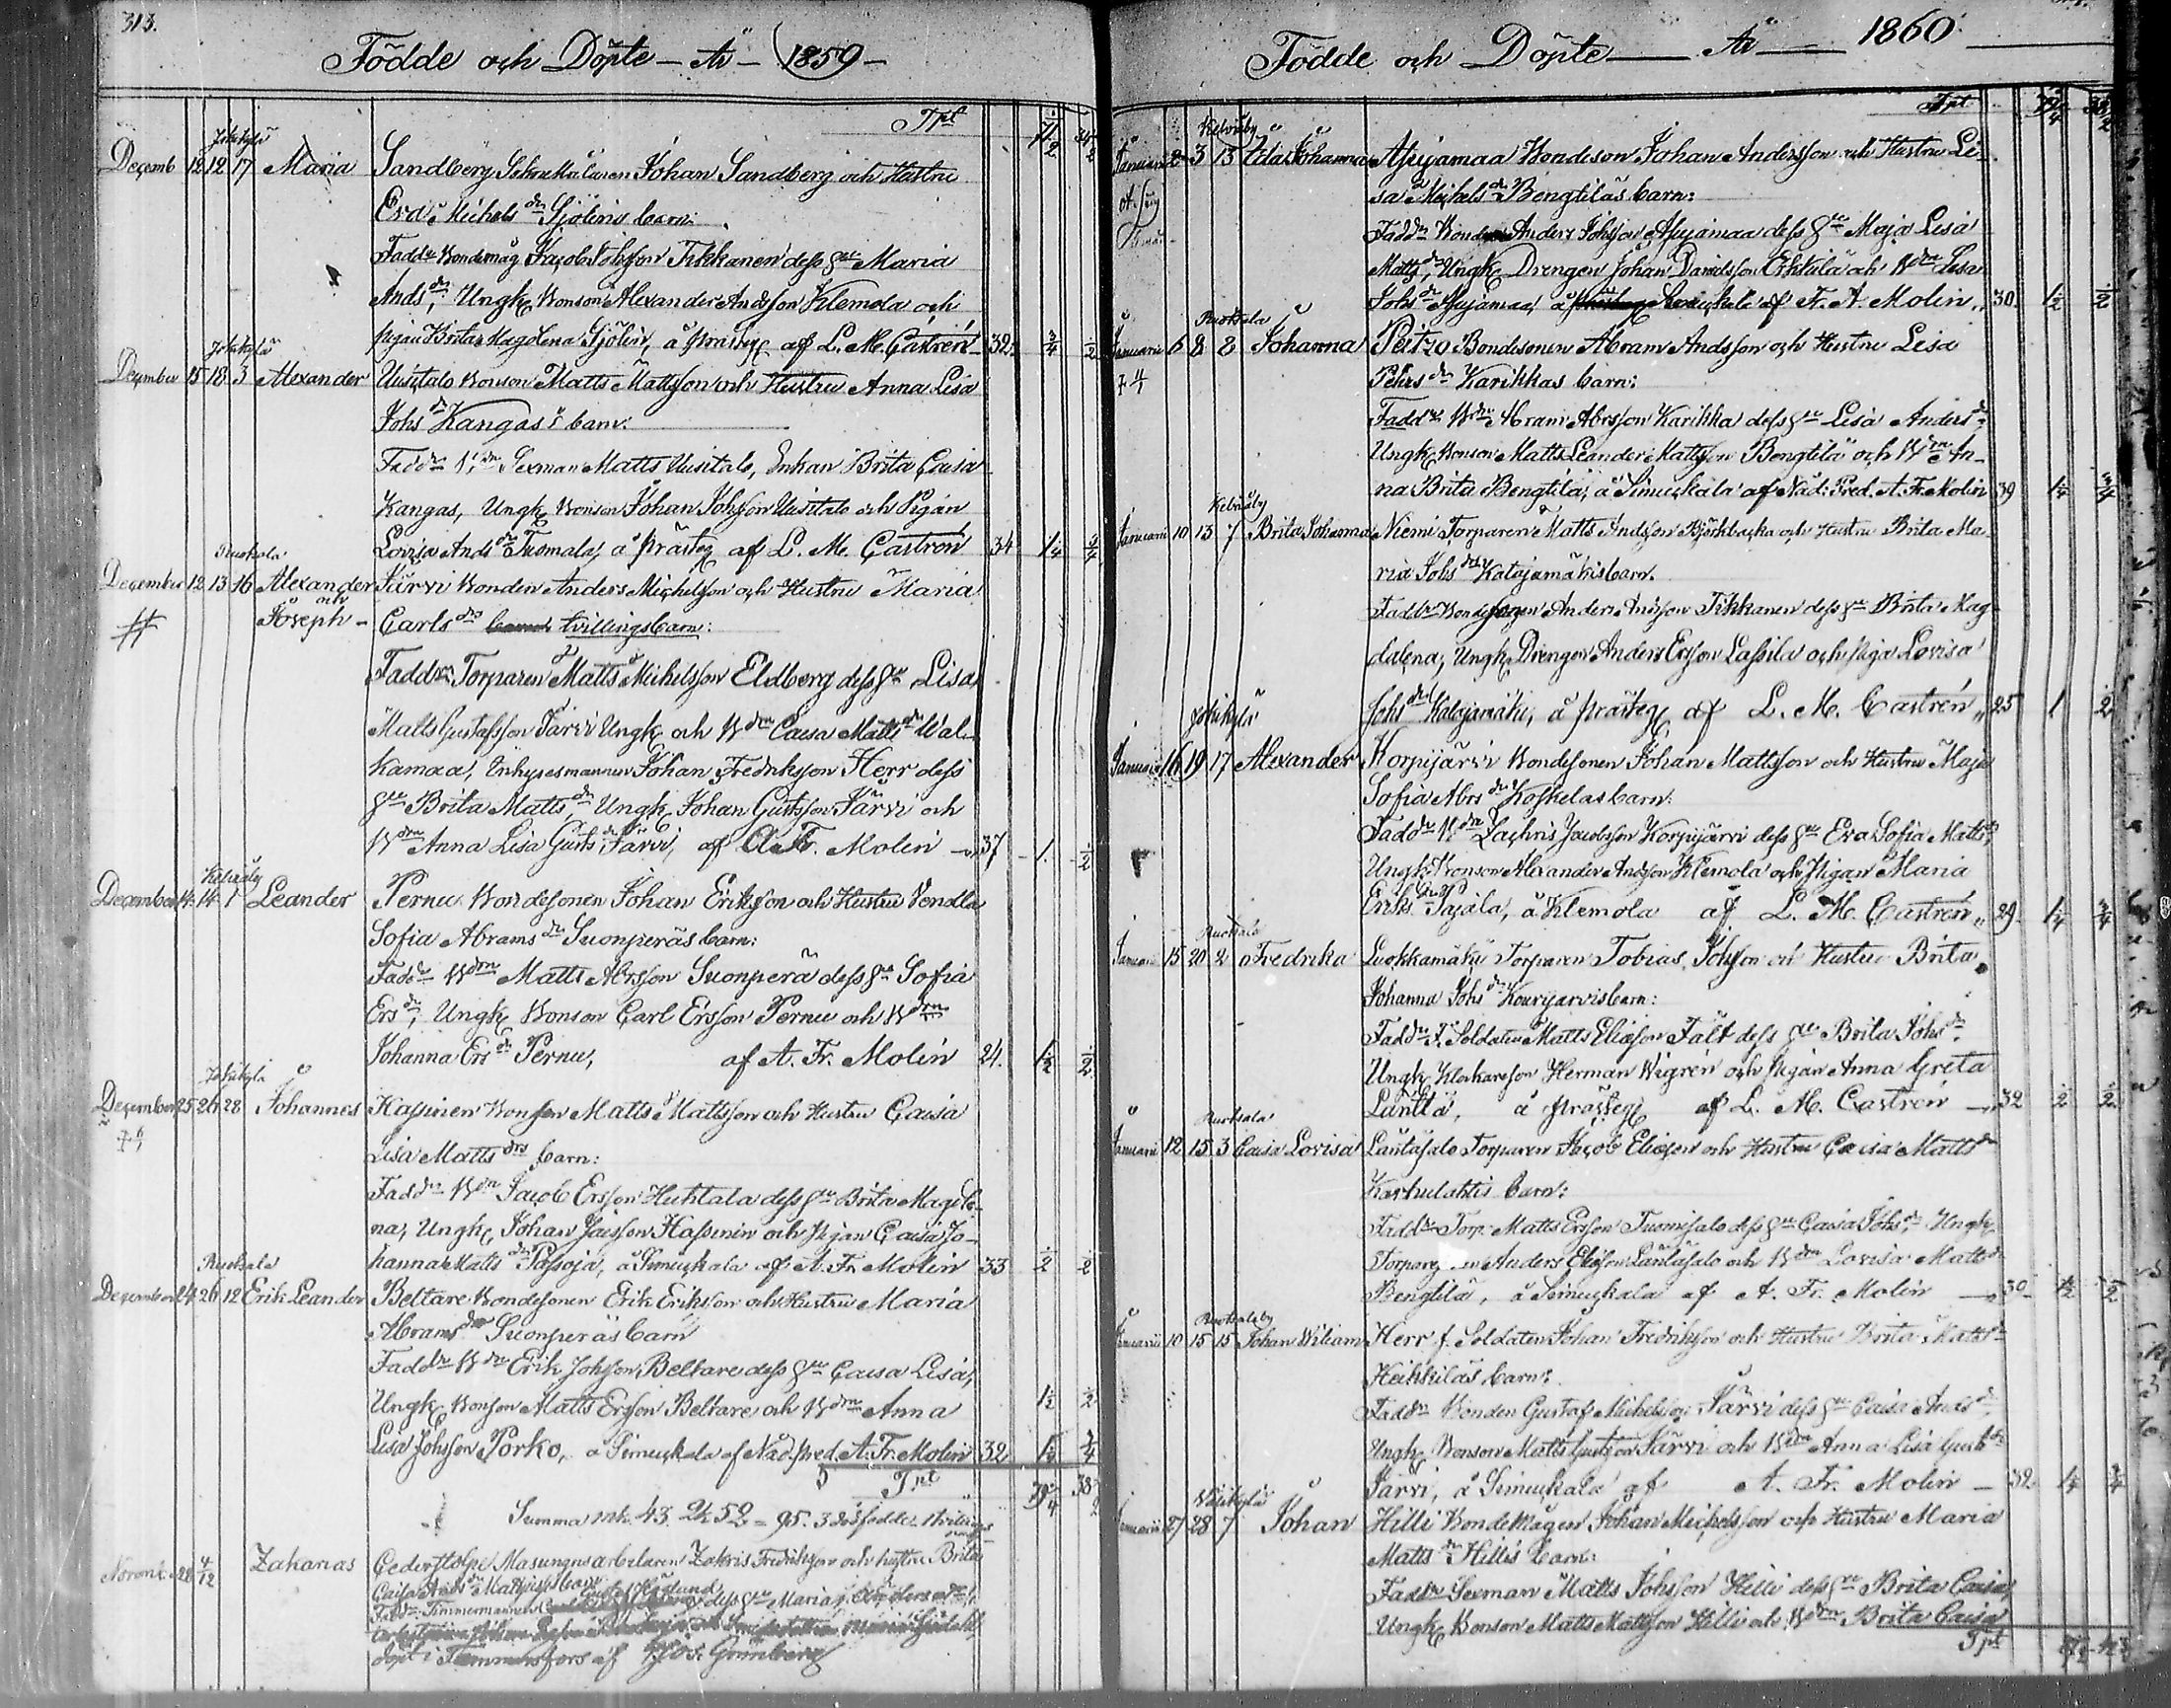 313.
Födde och Döpte – År – 1859 –
Tpt
Jokikylä
Decemb 12 12 17 Maria Sandberg Sokne Målaren Johan Sandberg och Hustru
Eva Michels dr Sjölins barn:
Faddr Bondemåg Jacob Johsson Tikkanen dess hu Maria
Ands dr, Ungk Bonson Alexander Andsson Klemola och
pigan Brita Magdlena Sjölin, å prästeg af L. M. Castrén 32 3/4 1/2
Jokikylä
December 15 18 3 Alexander Uusitalo Bonson Matts Mattsson och Hustru Anna Lisa
Johs dr Kangas's barn:
Faddr Sexman Matts Uusitalo, Enkan Brita Caisa
Kangas, Ungk Bonson Johan Johsson Uusitalo och Pigan
Lovisa Ands dr Tuomala, å prästeg af L. M. Castrén 34 1/4 3/4
Ruotsala
December 12 13 16 Alexander Järvi Bonden Anders Michelsson och Hustru Maria
och
Joseph – Carls drs tvillingsbarn:
Faddr Torparen Matts Michelsson Eldberg dess hu Lisa
Matts Gustafsson Järvi Ungk och Bdtrn Caisa Matts dr Wal-
kamaa, Inhysesmannen Johan Fredriksson Herr dess
hu Brita Matts dr, Ungk Johan Gustsson Järvi och
Bdtrn Anna Lisa Gusts dr Järvi, af A. Fr. Molin 37 1. 1/2
Kelviåby
December 14 14 1 Leander Pernu Bondesonen Johan Eriksson och Hustru Vendla
Sofia Abrams dr Suonperäs barn:
Faddr Matts Abrsson Suonperä dess hu Sofia
Ers dr, Ungk Bonson Carl Ersson Pernu och Bdtrn
Johanna Ers dr Pernu, af A. Fr. Molin 24. 1/2 1/2
Jokikylä
December 25 26 28 Johannes Hassinen Bonson Matts Mattsson och Hustru Caisa
Lisa Matts drs barn:
Faddr Jacob Ersson Huhtala dess hu Brita Magdle-
na, Ungk, Johan Jacsson Hassinen och pigan Caisa Jo-
hanna Matts dr Passoja, å Simuskala af A. Fr. Molin 33 1/2 1/2
Ruotsala
December 24 26 12 Erik Leander Beltare Bondesonen Erik Eriksson och Hustru Maria
Abrams dr Suonperäs barn
Faddr Erik Johsson Beltare dess hu Caisa Lisa,
Ungk Bonson Matts Ersson Beltare och Bdtrn Anna
Lisa Johsson Porko, å Simuskala af Nåd. pred A. Fr. Molin 32
Tpt
Summa mk. 43. 2k 52 = 95. 3 dödfödde 1 tvillings
Novemb 22 4/12 Zakarias Cederstolpe Masungnsarbetaren Zakris Fredriksson och hustru Brita
Caisa Ands dr barn
Faddr Timmermannen dess hu Maria
döpt i Tammersfors af Grönberg
Födde och Döpte — År — 1860
Tpt
Kelviåby
Januari 2 3 13 Ida Johanna Ahujamaa Bondeson Johan Andersson och Hustru Li-
sa Michels dr Bengtiläs barn:
Faddr Bonden Anders Johsson Ahujamaa dess hu Maja Lisa
Matts dr, Ungk Drengen Johan Davidsson Erkkilä och Bdtrn Lisa
Johs dr Ahujamaa, å af F. A. Molin 30. 1/2 1/2
Ruotsala
Januari 6 8 8 Johanna Peitzo Bondesonen Abram Andsson och Hustru Lisa
Pehrs dr Karikkas barn:
Faddr Abram Abrsson Karikka dess hu Lisa Anders dr
Ungk Bonson Matts Leander Mattsson Bengtilä och Bdtrn An-
na Brita Bengtilä, å Simuskala af Nåd. Pred. A. Fr. Molin 39 1/4 3/4
Kelviåby
Januari 10 13 7 Brita Johanna Niemi Torparen Matts Andsson Björkbacka och Hustru Brita Ma-
ria Johs dr Katajamäkis barn.
Faddr Bondesonen Anders Andsson Tikkanen dess hu Brita Mag-
dalena, Ungk Drengen Anders Ersson Lassila och piga Lovisa
Johs dr Katajamäki, å prästeg af L. M. Castrén 25 1 2
Jokikylä
Januari 16 19 17 Alexander Korpijärvi Bondesonen Johan Mattsson och Hustru Maja
Sofia Abrs dr Koskelas barn:
Faddr Zachris Jacobsson Korpijärvi dess hu Eva Sofia Matts dr,
Ungk Bonson Alexander Andsson Klemola och Pigan Maria
Eriks dr Pajala, å Klemola af L. M. Castrén 29. 1/4 3/4
Ruotsala
Januari 15 20 2 Fredrika Luokkamäki Torparen Tobias Johsson och Hustru Brita
Johanna Johs dr Kourijärvis barn:
Faddr F. Soldaten Matts Eliasson Fält dess hu Brita Johs dr.
Ungk Klockareson Herman Wigrén och pigan Anna Greta
Länttä, å prästeg af L. M. Castrén 32 1/2 1/2
Ruotsala
Januari 12 15 3 Caisa Lovisa Läntäsalo Torparen Jacob Eliasson och Hustru Caisa Matts dr
Karhulahtis barn:
Faddr Torp Matts Ersson Tuomisalo dess hu Caisa Johs dr Ungk
Torpareson Anders Eliasson Läntäsalo och Bdtrn Lovisa Matts dr
Bengtilä, å Simuskala af A. Fr. Molin 30 1/2 1/2
Ruotsalaby
Januari 10 15 15 Johan Wiliam Herr f. Soldaten Johan Fredriksson och Hustru Brita Matts dr
Heikkiläs barn:
Faddr Bonden Gustaf Michelsson Järvi dess hu Caisa Ands dr,
Ungk Bonson Matts Gustsson Järvi och Bdtrn Anna Lisa Gusts dr
Järvi, å Simuskala af A. Fr. Molin – 32 1/4 3/4
Januari 27 28 7 Johan Hilli Bondemågen Johan Michelsson och Hustru Maria
Matts dr Hillis barn:
Faddr Sexman Matts Johsson Hilli dess hu Brita Caisa,
Ungk Bonson Matts Mattsson Hilli och Bdtrn Brita Caisa
Tpt